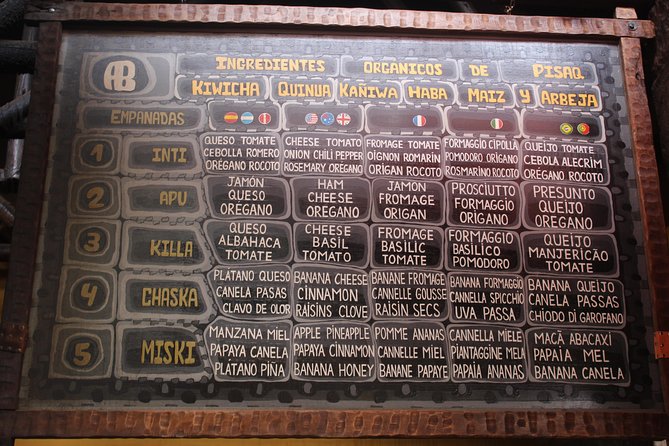 AB
INGREDIENTES ORGANICOS DE PISAQ
KIWICHA QUINUA KAÑIWA HABA MAIZ Y ARBEJA
EMPANADAS
1 INTI
QUESO TOMATE
CEBOLLA ROMERO
ORÉGANO ROCOTO
CHEESE TOMATO
ONION CHILI PEPPER
ROSEMARY OREGANO
FROMAGE TOMATE
OIGNON ROMARIN
ORIGAN ROCOTO
FORMAGGIO CIPOLLA
POMODORO ORIGANO
ROSMARINO ROCOTO
QUEIJO TOMATE
CEBOLA ALECRIM
ORÉGANO ROCOTO
2 APU
JAMÓN
QUESO
OREGANO
HAM
CHEESE
OREGANO
JAMON
FROMAGE
ORIGAN
PROSCIUTTO
FORMAGGIO
ORIGANO
PRESUNTO
QUEIJO
OREGANO
3 KILLA
QUESO
ALBAHACA
TOMATE
CHEESE
BASIL
TOMATO
FROMAGE
BASILIC
TOMATE
FORMAGGIO
BASILICO
POMODORO
QUEIJO
MANJERICÃO
TOMATE
4 CHASKA
PLÁTANO QUESO
CANELA PASAS
CLAVO DE OLOR
BANANA CHEESE
CINNAMON
RAISINS CLOVE
BANANE FROMAGE
CANNELLE GOUSSE
RAISIN SECS
BANANA FORMAGGIO
CANNELLA SPICCHIO
UVA PASSA
BANANA QUEIJO
CANELA PASSAS
CHIODO DI GAROFANO
5 MISKI
MANZANA MIEL
PAPAYA CANELA
PLATANO PIÑA
APPLE PINEAPPLE
PAPAYA CINNAMON
BANANA HONEY
POMME ANANAS
CANNELLE MIEL
BANANE PAPAYE
CANNELLA MIELE
PIANTAGGINE MELA
PAPAIA ANANAS
MAÇÃ ABACAXÍ
PAPAÍA MEL
BANANA CANELA